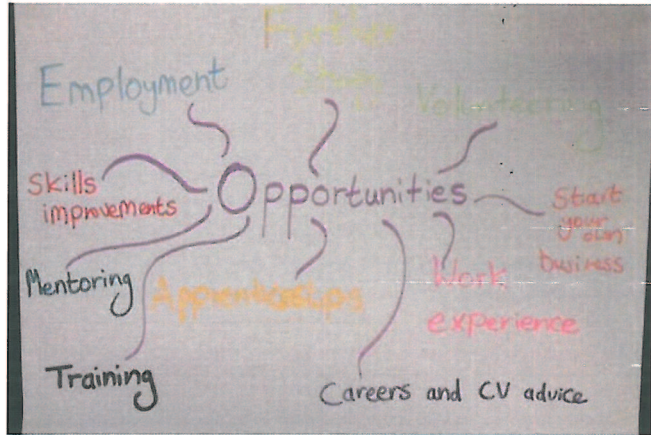 Further
Study
Employment
Volunteering
Opportunities
Skills
improvements
Start
your own
business
Mentoring
Apprenticeships
Work
experience
Training
Careers and CV advice